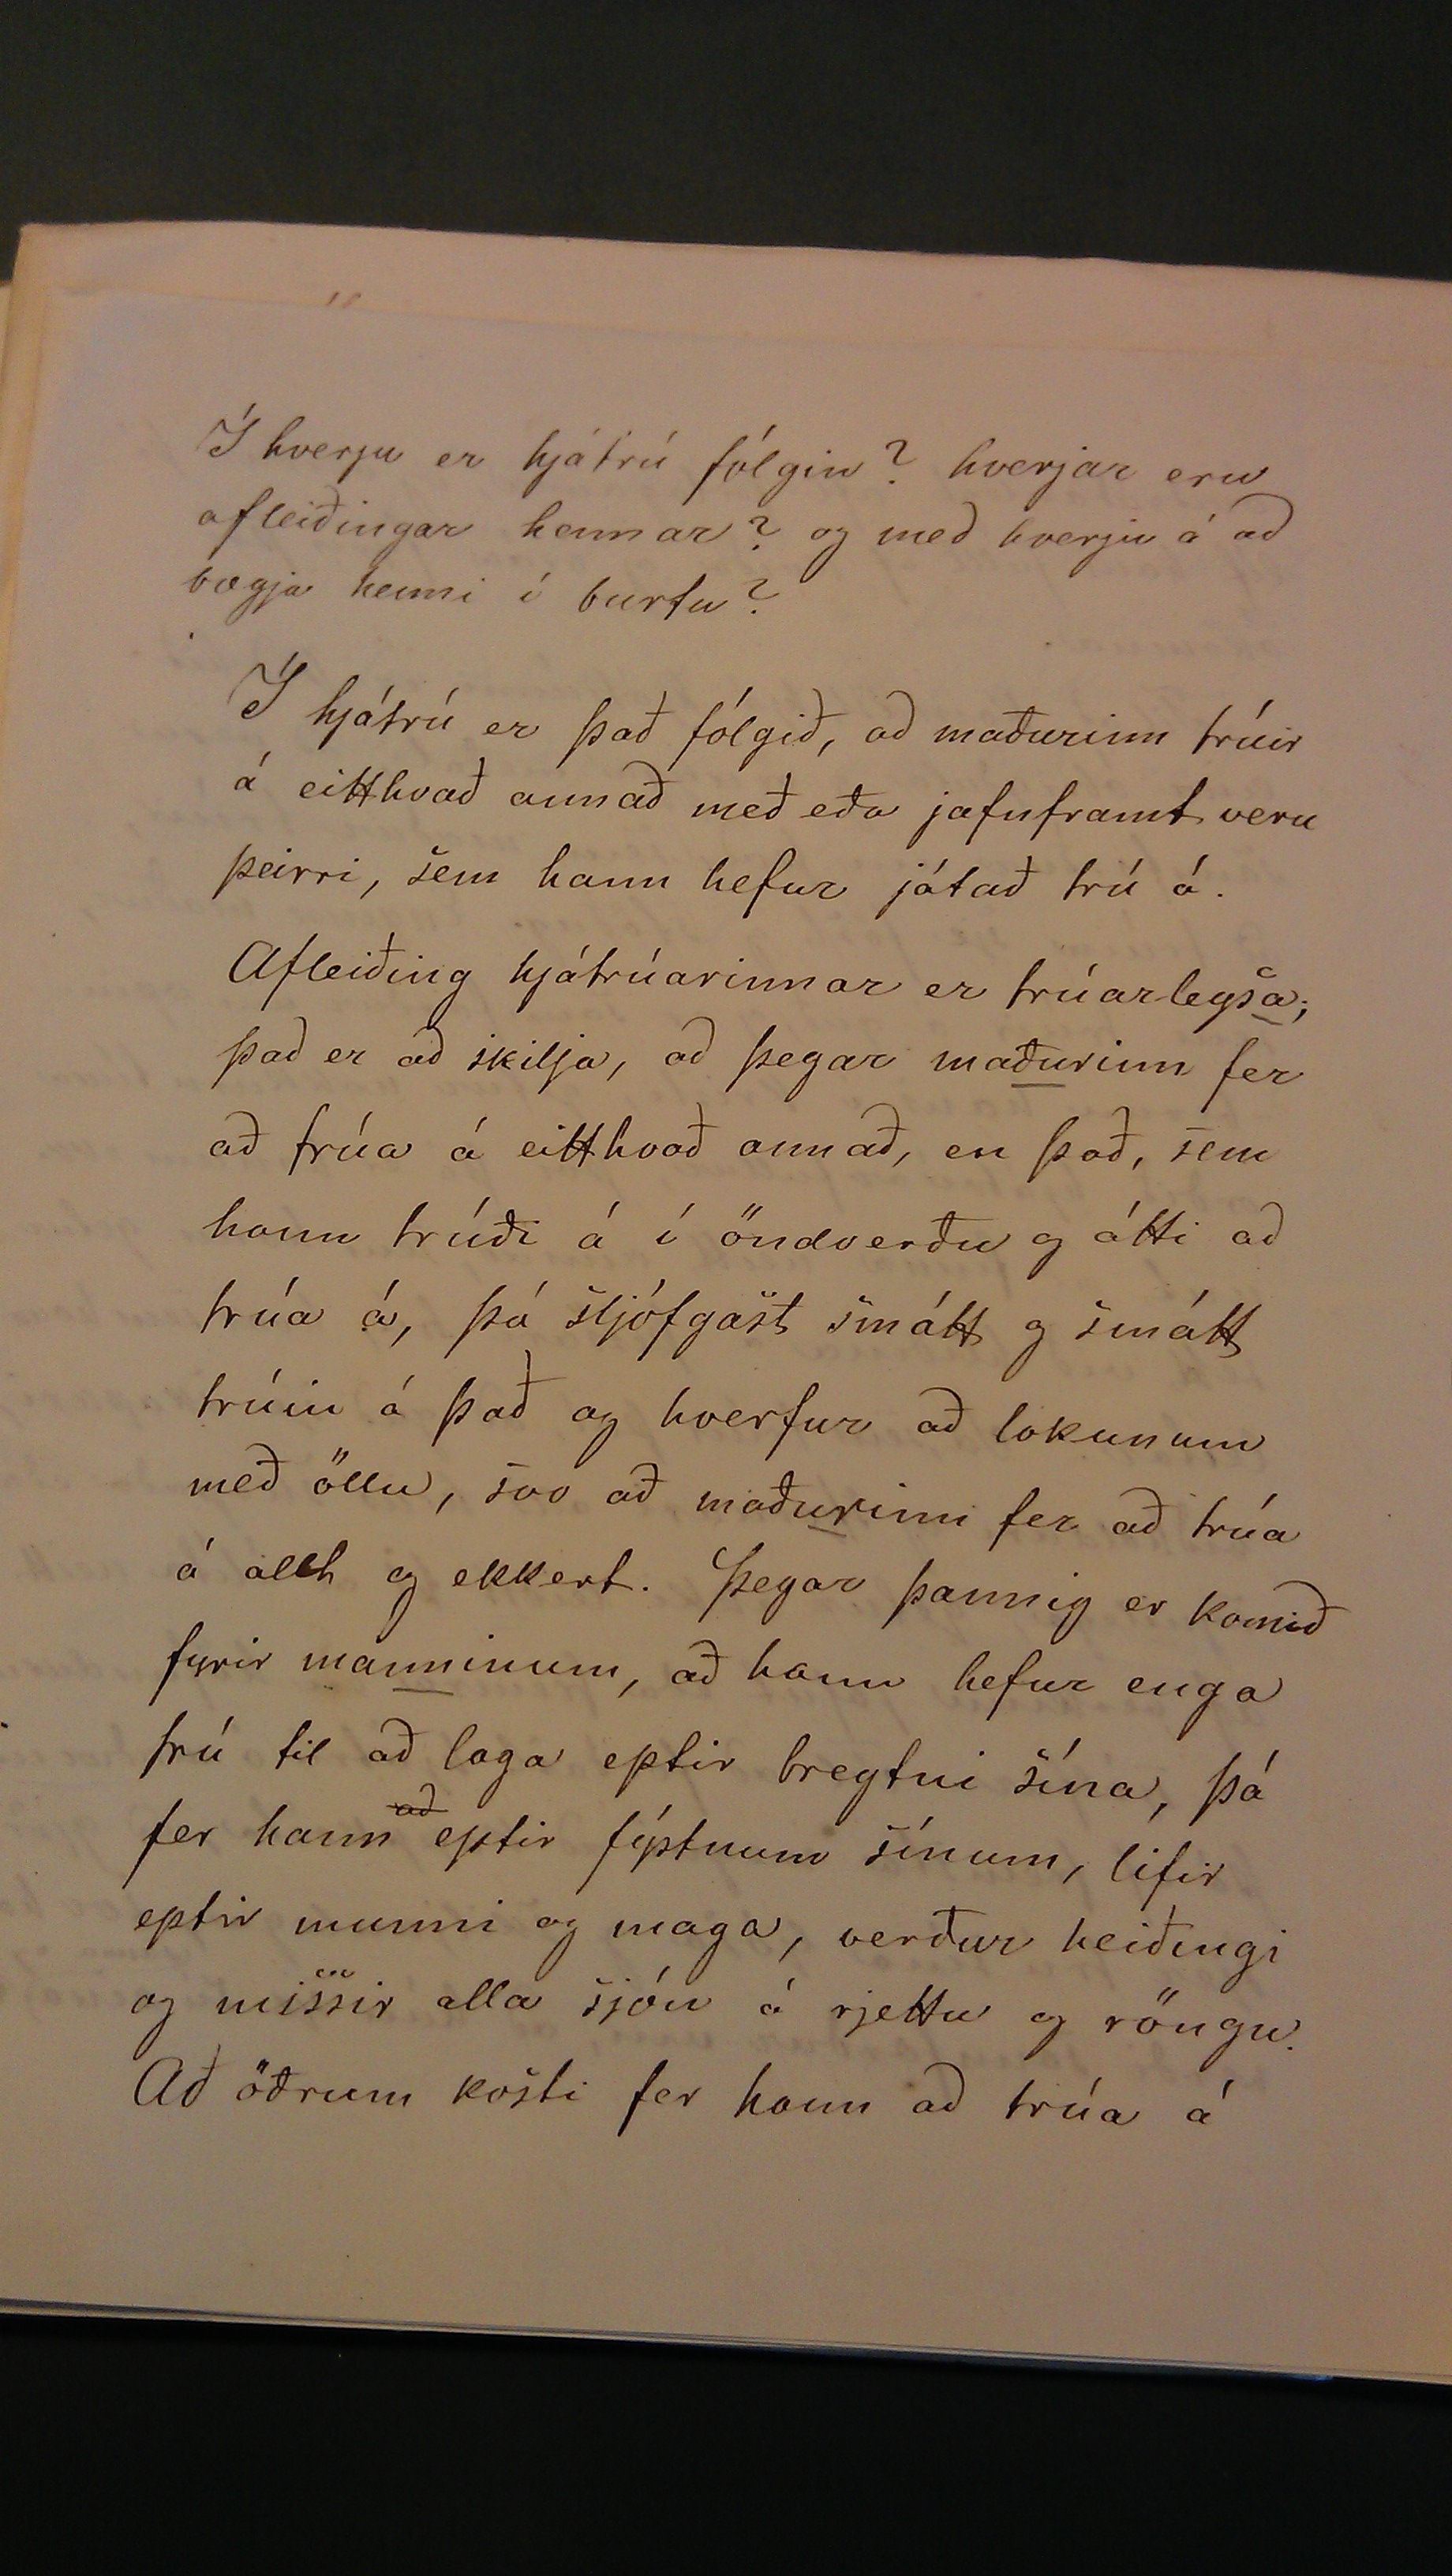 Í hverju er hjátrú fólgin? hverjar eru
afleiðingar hennar? og með hverju á að
bægja henni í burtu?
Í hjátrú er það fólgið, að maðurinn trúir
á eitthvað annað með eða jafnframt veru
þeirri, sem hann hefur játað trú á.
Afleiðing hjátrúarinnar er trúarleysa;
það er að skilja, að þegar maðurinn fer
að trúa á eitthvað annað, en það, sem
hann trúði á í öndverðu og átti að
trúa á, þá sljófgast smátt og smátt
trúin á það og hverfur að lokunum
með öllu, svo að maðurinn fer að trúa
á allt og ekkert. Þegar þannig er komið
fyrir manninum, að hann hefur enga
trú til að laga eptir breytni sína, þá
fer hann að eptir fýstnum sínum, lifir
eptir munni og maga, verður heiðingi
og missir alla sjón á rjettu og röngu.
Að öðrum kosti fer hann að trúa á